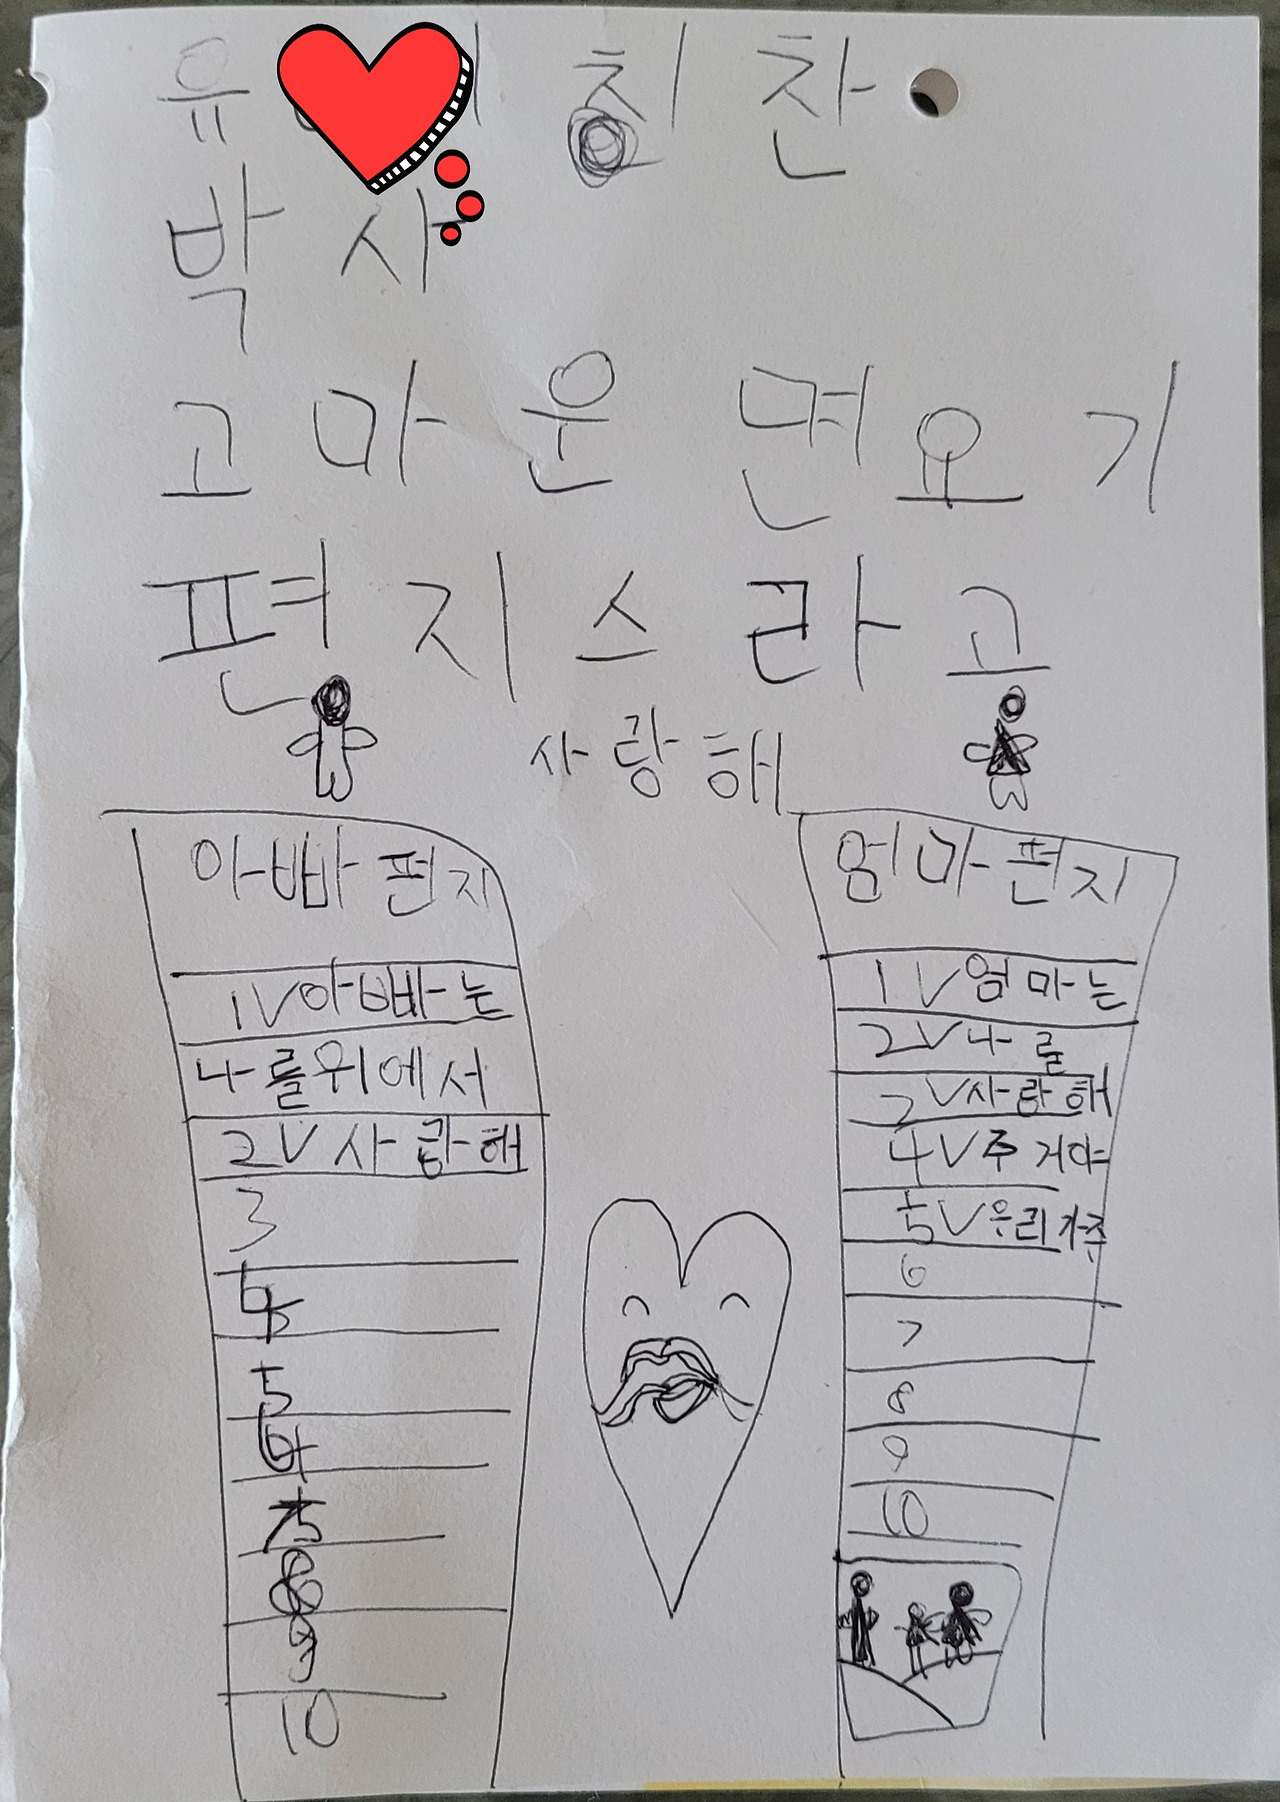 유 칭찬
박사
고마운 면요기
편지스라고
사랑해
아빠편지
1V아빠는
나를위에서
2V사랑해
3
4
5
6
7
8
9
10
엄마편지
1V엄마는
2V나를
3V사랑해
4V주거야
5V우리가주
6
7
8
9
10